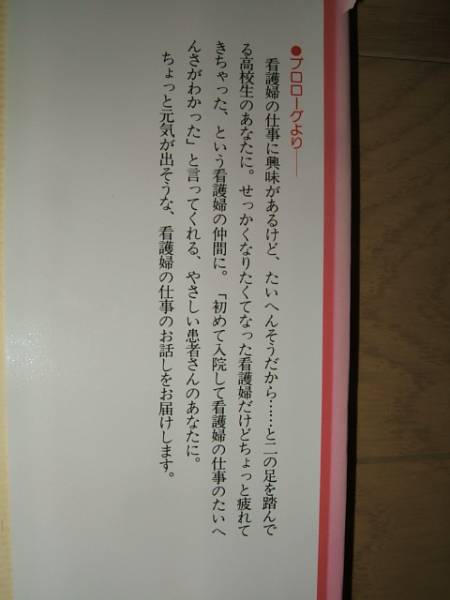 ●プロローグより――
看護婦の仕事に興味があるけど、たいへんそうだから……と二の足を踏んで
る高校生のあなたに。せっかくなりたくてなった看護婦だけどちょっと疲れて
きちゃった、という看護婦の仲間に。「初めて入院して看護婦の仕事のたいへ
んさがわかった」と言ってくれる、やさしい患者さんのあなたに。
ちょっと元気が出そうな、看護婦の仕事のお話しをお届けします。